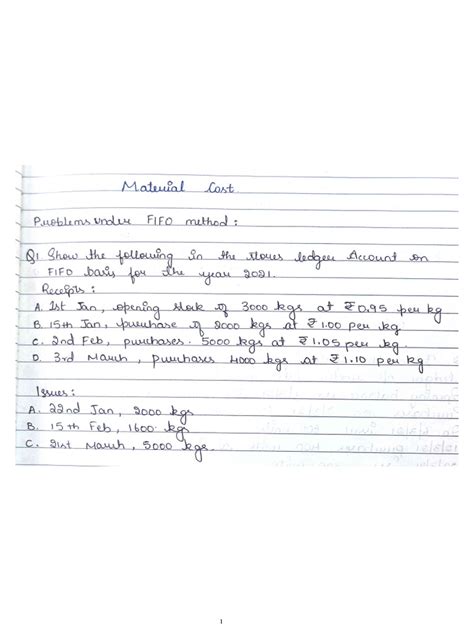 Material Cost
Problems under FIFO method :
Q1 Show the following in the stores ledger Account on
FIFO basis for the year 2021.
Receipts :
A. 1st Jan, opening stock of 3000 kgs at ₹0.95 per kg
B. 15th Jan, purchase of 2000 kgs at ₹1.00 per kg
C. 2nd Feb, purchases. 5000 kgs at ₹1.05 per kg.
D. 3rd March, purchases 4000 kgs at ₹1.10 per kg
Issues :
A. 22nd Jan, 2000 kgs
B. 15th Feb, 1600 kgs
C. 21st March, 5000 kgs.
1